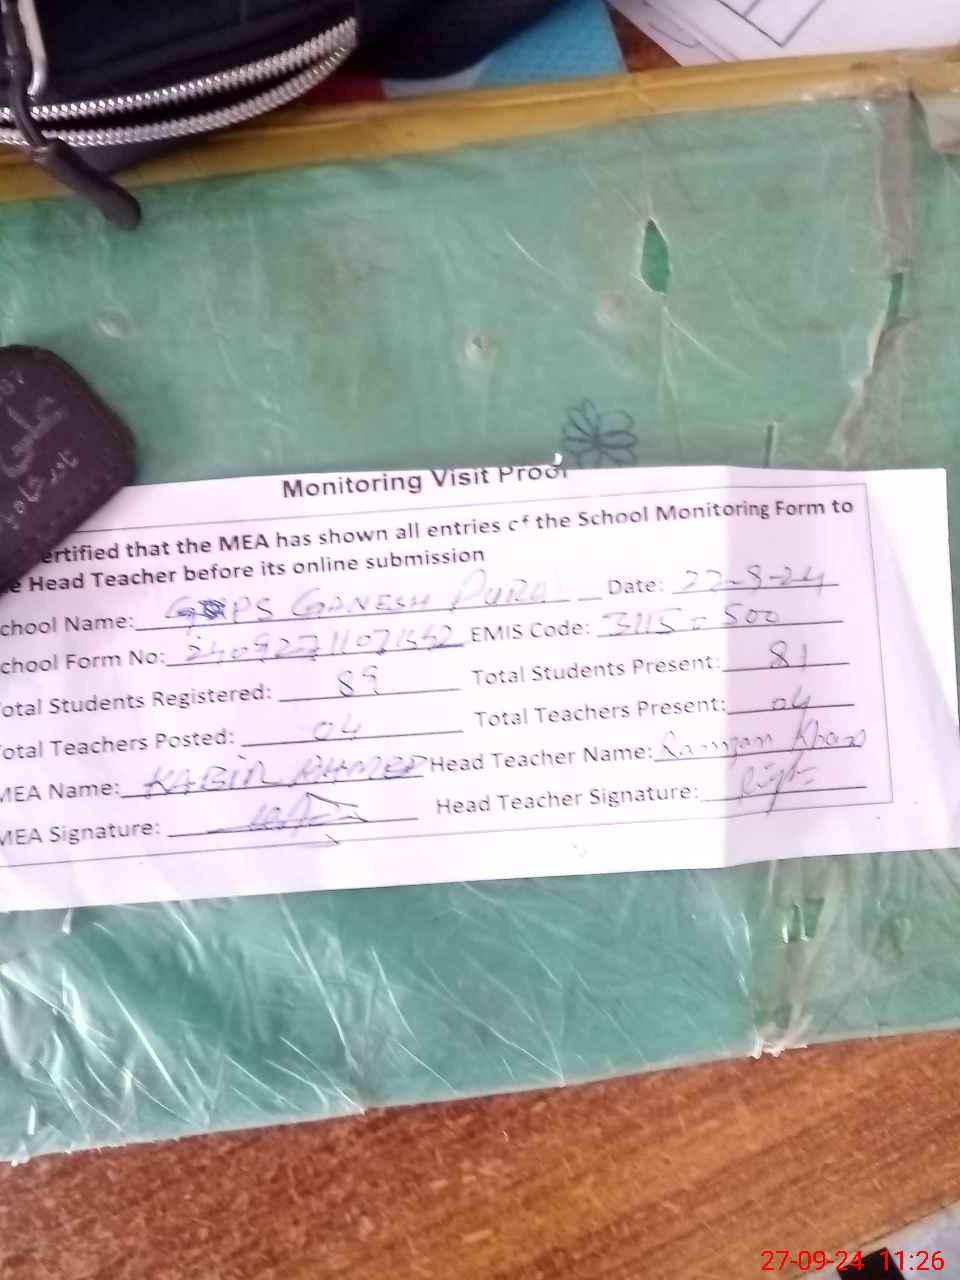 Monitoring Visit Proof
ertified that the MEA has shown all entries of the School Monitoring Form to
e Head Teacher before its online submission
chool Name: GPS GANESH PURA Date:
chool Form No: EMIS Code:
otal Students Registered: 89 Total Students Present: 81
otal Teachers Posted: 04 Total Teachers Present: 04
MEA Name: KABIR AHMED Head Teacher Name: Ramzan Khan
MEA Signature: Head Teacher Signature:
27-09-24 11:26